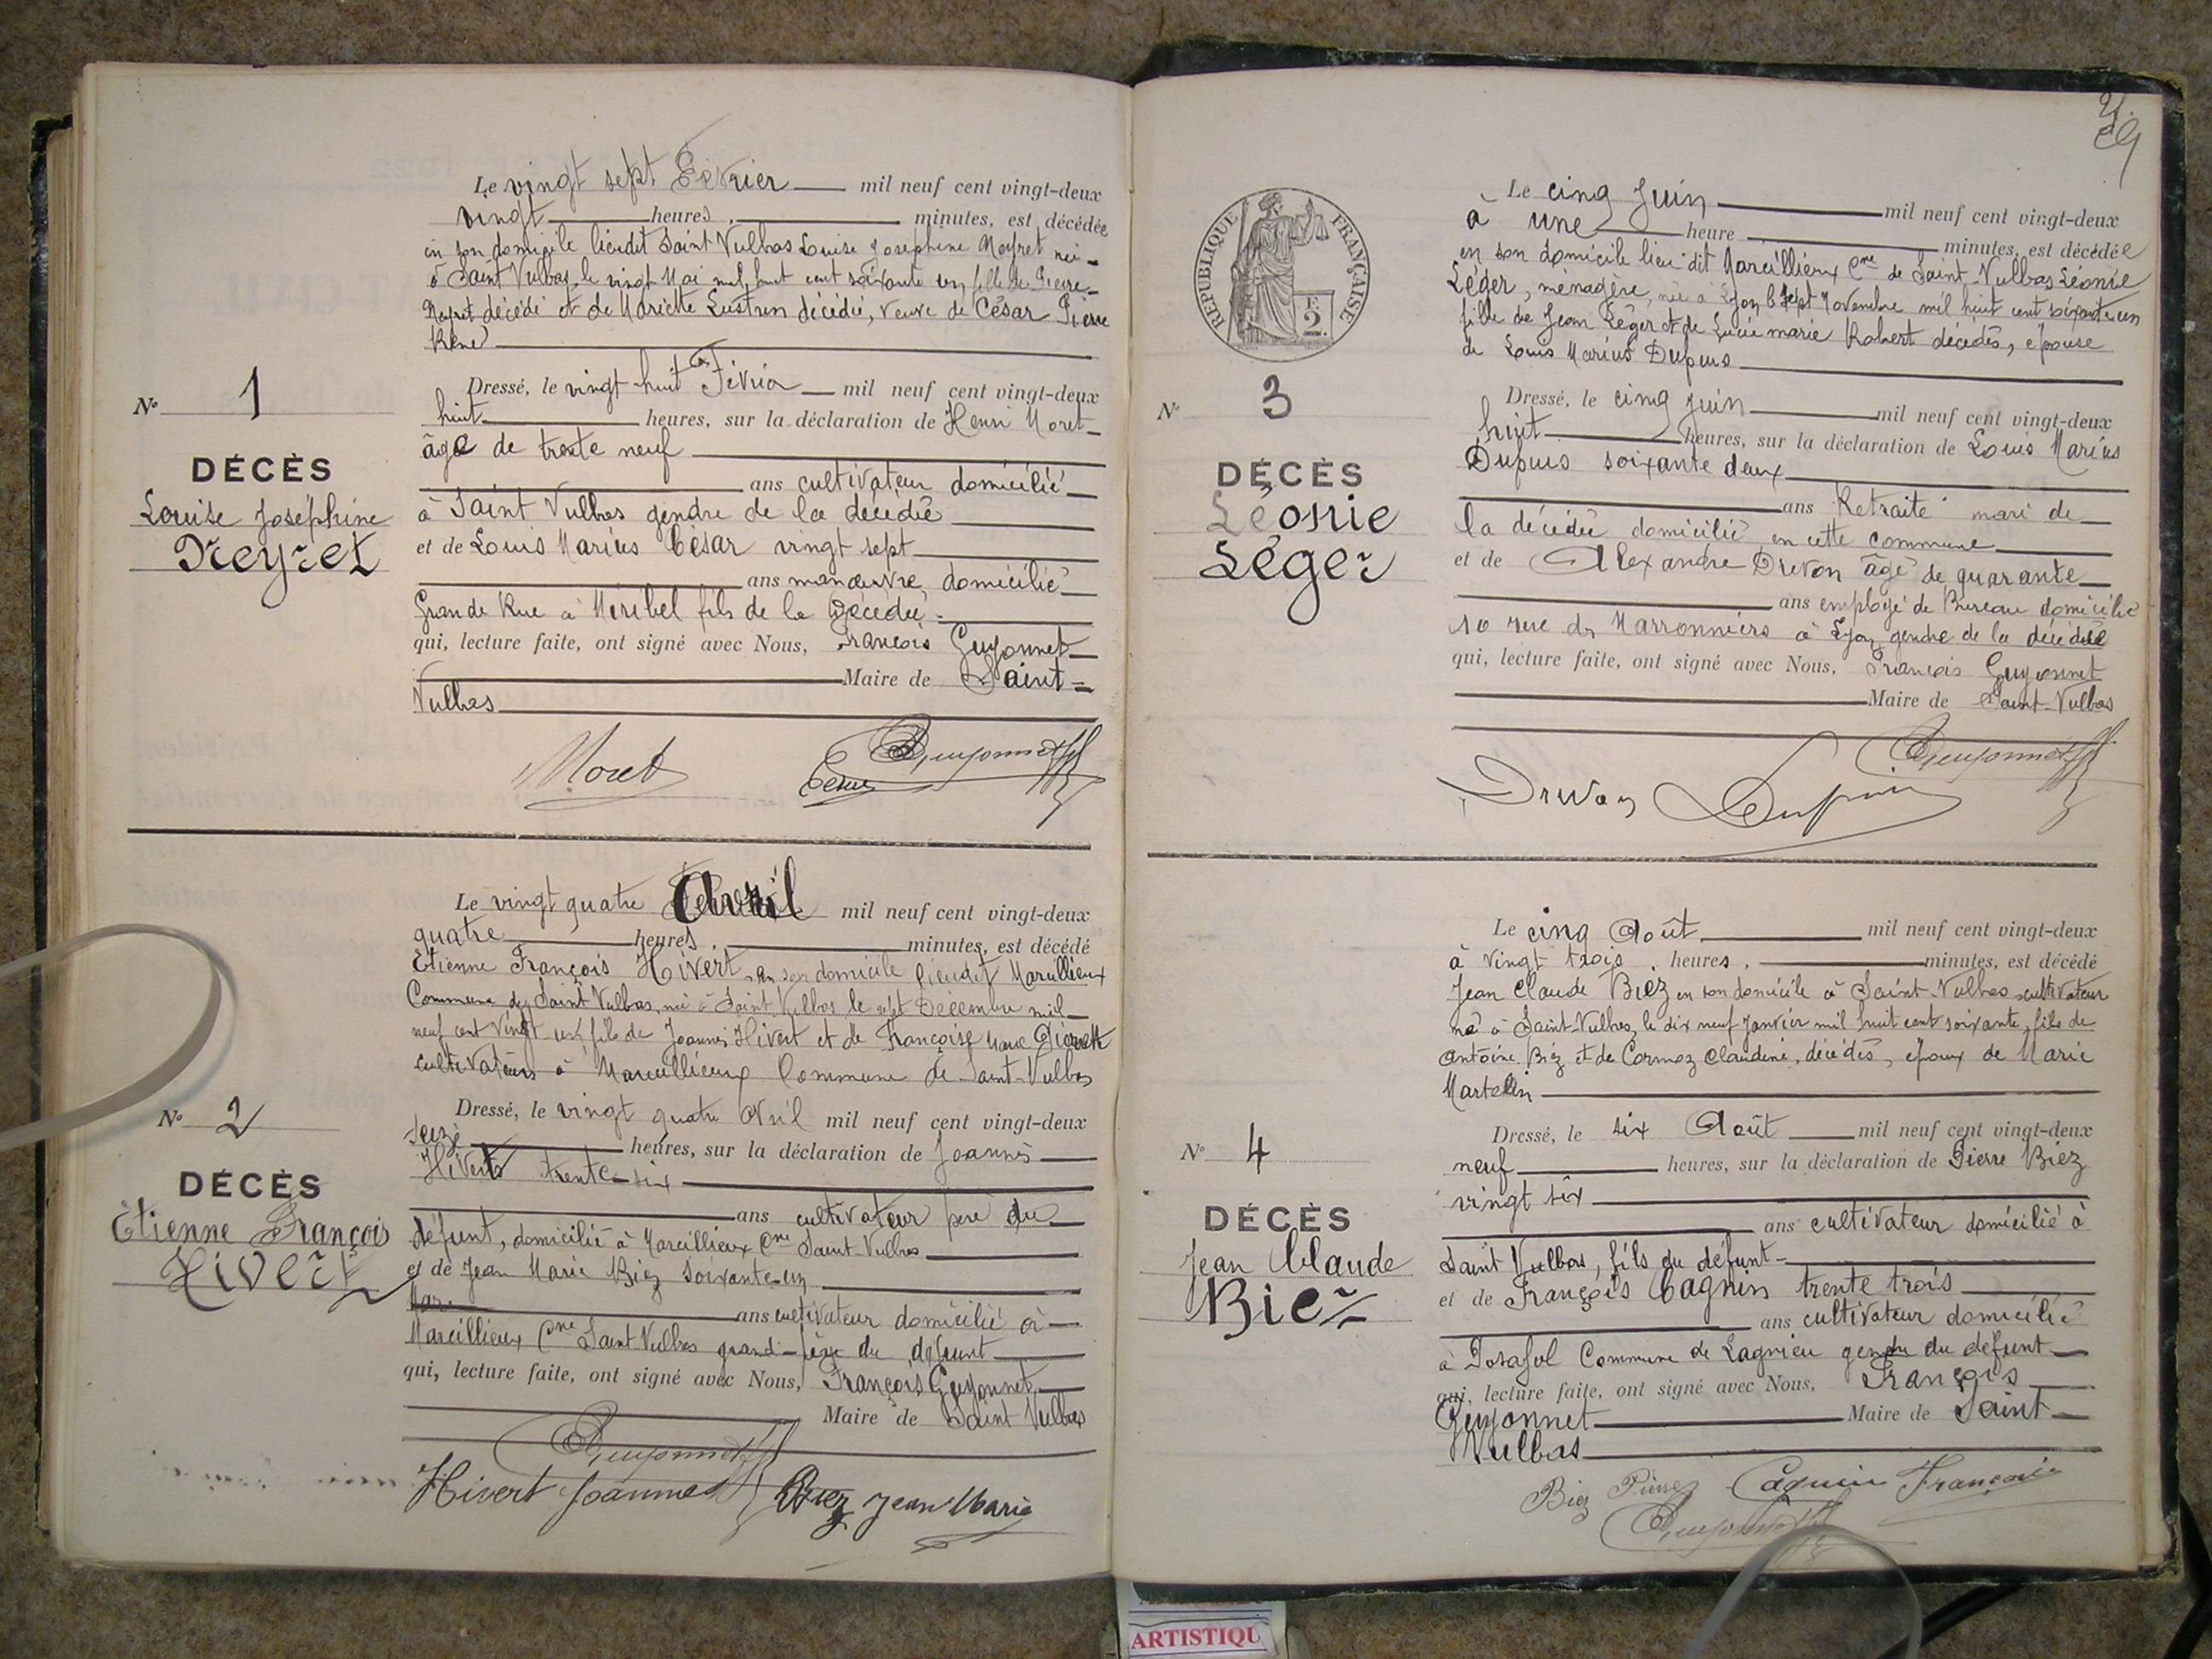 Le vingt sept Février mil neuf cent vingt-deux
vingt heures, minutes, est décédée
en son domicile lieudit Saint Vulbas Louise Joséphine Neyret née
à Saint Vulbas, le vingt Mai mil huit cent soixante un fille de Pierre
Neyret décédé et de Mariette décédée, veuve de César Pierre
René
Nº 1
DÉCÈS
Louise Joséphine
Neyret
Dressé, le vingt-huit Février mil neuf cent vingt-deux
huit heures, sur la déclaration de Henri Moret
âgé de trente neuf
ans cultivateur domicilié
à Saint Vulbas gendre de la décédée
et de Louis Marius César vingt sept
ans manœuvre, domicilié
Grande Rue à Miribel fils de la décédée
qui, lecture faite, ont signé avec Nous, François Guyonnet
Maire de Saint-
Vulbas
Moret
Guyonnet
César
Le vingt quatre Avril mil neuf cent vingt-deux
quatre heures, minutes, est décédé
Etienne François Hivert en son domicile lieudit Marcillieux
Commune de Saint Vulbas, né à Saint Vulbas le sept Décembre mil
neuf cent vingt un fils de Joannès Hivert et de Françoise
cultivateurs à Marcillieux Commune de Saint-Vulbas
Nº 2
DÉCÈS
Etienne François
Hivert
Dressé, le vingt quatre Avril mil neuf cent vingt-deux
seize heures, sur la déclaration de Joannès
Hivert trente-six
ans cultivateur père du
défunt, domicilié à Marcillieux Cne Saint-Vulbas
et de Jean Marie Biez soixante-un
Mar.
ans cultivateur domicilié à
Marcillieux Cne Saint Vulbas grand-père du défunt
qui, lecture faite, ont signé avec Nous, François Guyonnet
Maire de Saint Vulbas
Guyonnet
Hivert Joannès Biez Jean Marie
29
RÉPUBLIQUE FRANÇAISE
F.
2.
Le cinq Juin mil neuf cent vingt-deux
à une heure minutes, est décédée
en son domicile lieu dit Marcillieux Cne de Saint-Vulbas Léonie
Léger, ménagère, née à Lyon le sept Novembre mil huit cent soixante un
fille de Jean Léger et de Lucie marie Robert décédés, épouse
de Louis Marius Dupuis
Nº 3
DÉCÈS
Léonie
Léger
Dressé, le cinq Juin mil neuf cent vingt-deux
huit heures, sur la déclaration de Louis Marius
Dupuis soixante deux
ans Retraité mari de
la décédée domicilié en cette commune
et de Alexandre Drevon âgé de quarante
ans employé de Bureau domicilié
10 rue des Marronniers à Lyon gendre de la décédée
qui, lecture faite, ont signé avec Nous, François Guyonnet
Maire de Saint-Vulbas
Guyonnet
Drevon Dupuis
Le cinq Août mil neuf cent vingt-deux
à vingt trois heures, minutes, est décédé
Jean Claude Biez en son domicile à Saint-Vulbas cultivateur
né à Saint-Vulbas, le dix neuf Janvier mil huit cent soixante, fils de
Antoine Biez et de Cormoz Claudine, décédés, époux de Marie
Martelin
Nº 4
DÉCÈS
Jean Claude
Biez
Dressé, le six Août mil neuf cent vingt-deux
neuf heures, sur la déclaration de Pierre Biez
vingt six
ans cultivateur domicilié à
Saint Vulbas, fils du défunt
et de François Cagnin trente trois
ans cultivateur domicilié
à Posafol Commune de Lagnieu gendre du défunt
qui, lecture faite, ont signé avec Nous, François
Guyonnet Maire de Saint-
Vulbas
Biez Pierre Cagnin François
Guyonnet
ARTISTIQU